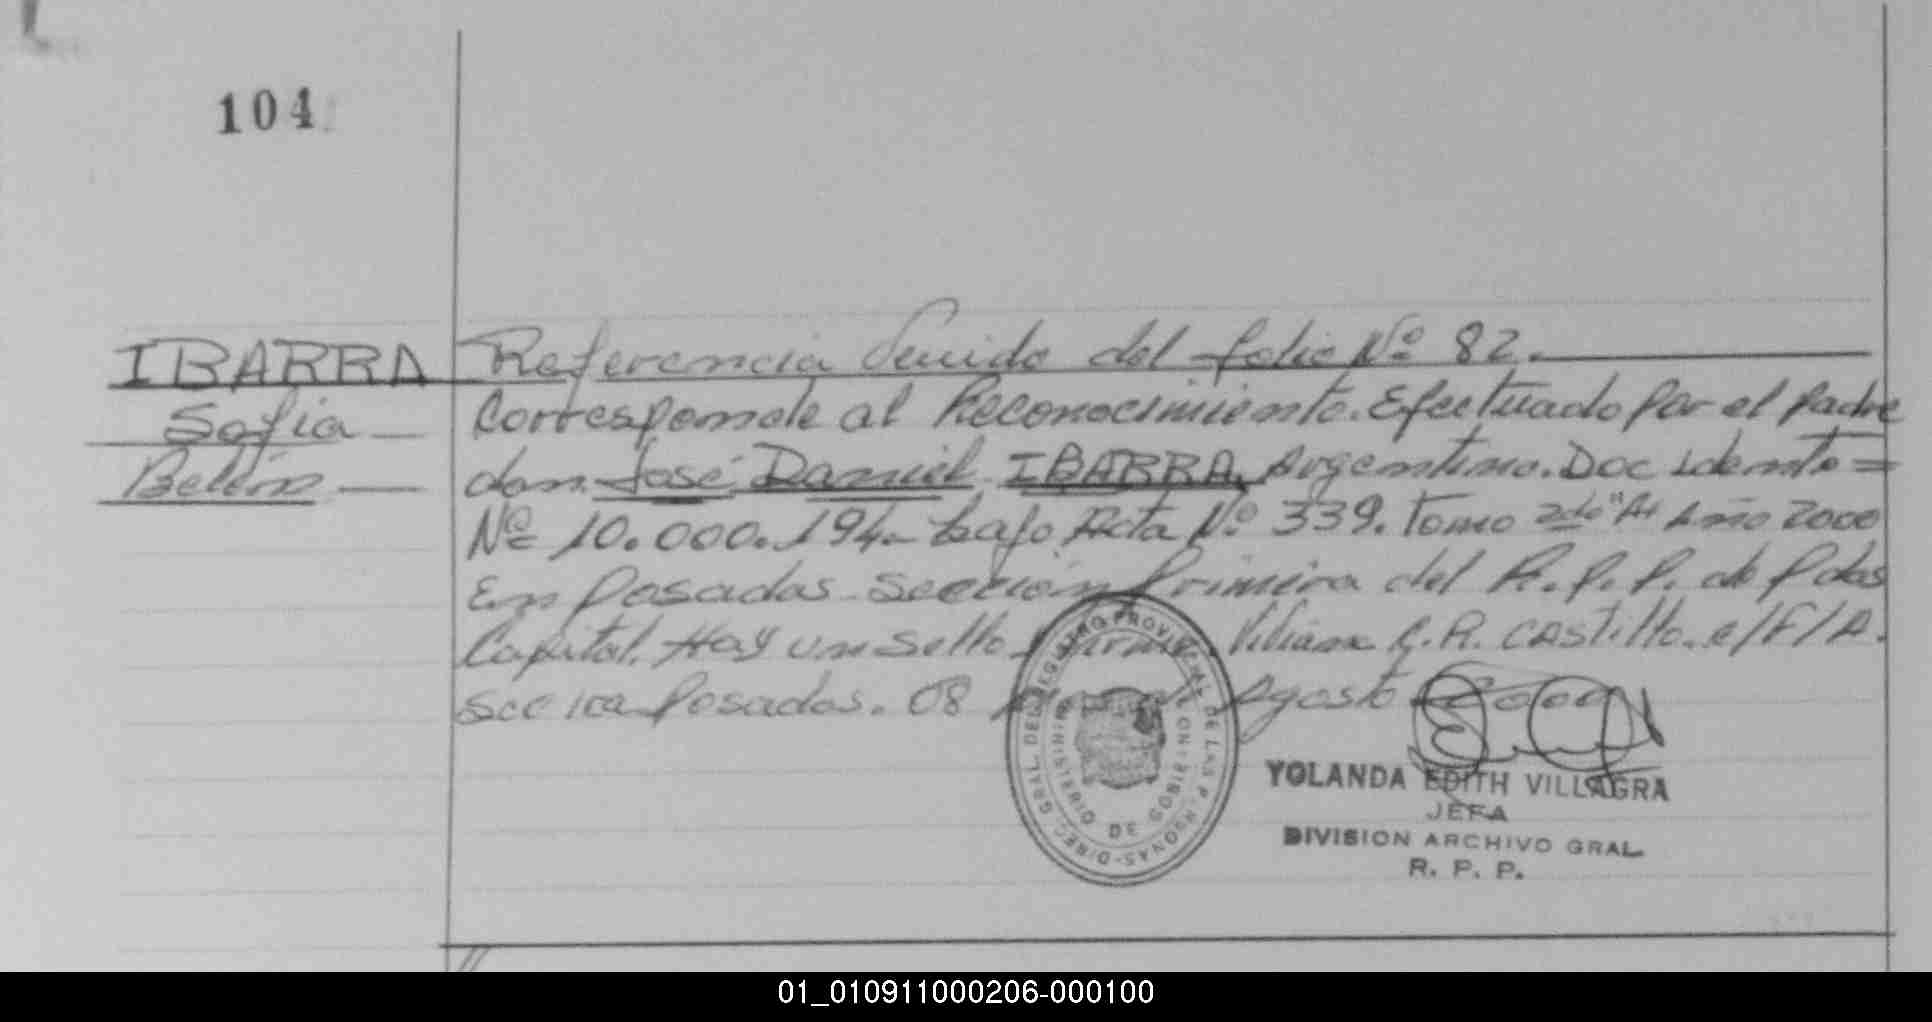 104
IBARRA
Sofia
Belén
Referencia Venido del folio Nº 82.
Corresponde al Reconocimiento. Efectuado por el padre
don José Daniel IBARRA, Argentino. Doc Idento
Nº 10.000.194. bajo Acta Nº 339. Tomo 2do "A" Año 2000
En Posadas Sección Primera del R.P.P. de Pdas
Capital. Hay un sello. Firma. Viliana R. R. CASTILLO. e/F/A.
Sec 1ra Posadas. 08 Agosto 2000
DIREC. GRAL. DEL REGISTRO PROVINCIAL DE LAS PERSONAS
MINISTERIO DE GOBIERNO
YOLANDA EDITH VILLAGRA
JEFA
DIVISION ARCHIVO GRAL
R. P. P.
01_010911000206-000100